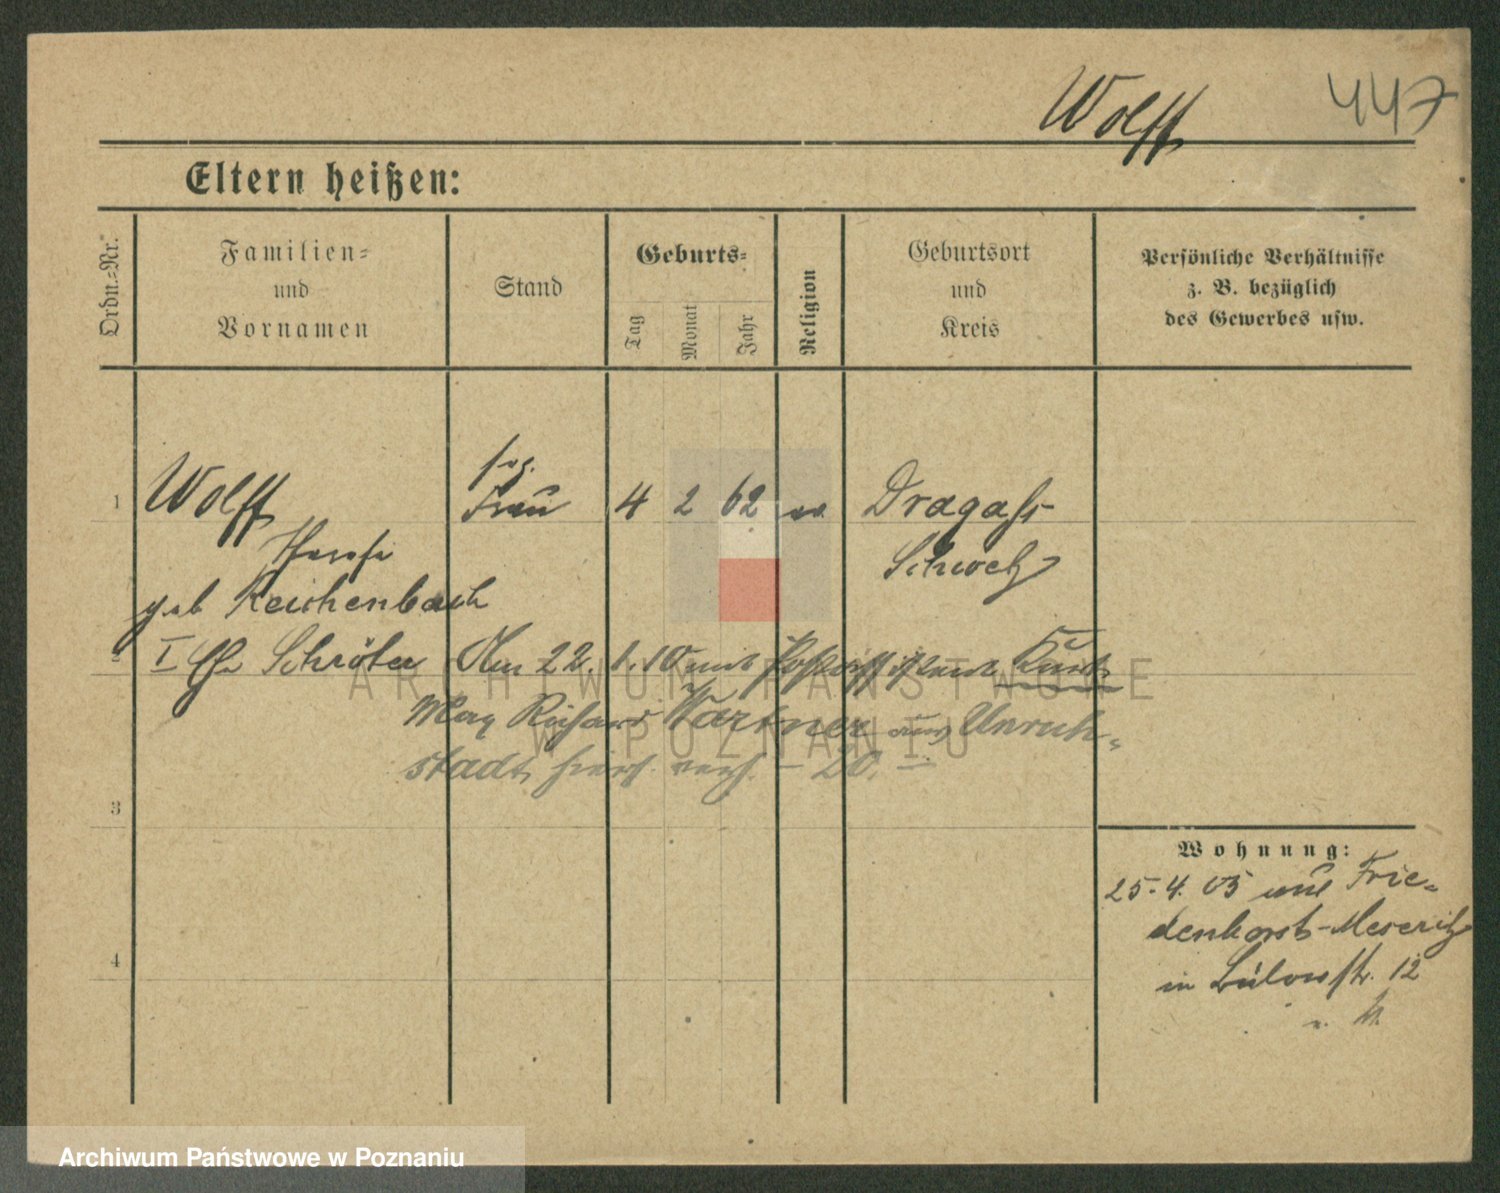 Wolff 447
Eltern heißen:
Ordn.-Nr.
Familien-
und
Vornamen
Stand
Geburts-
Tag
Monat
Jahr
Religion
Geburtsort
und
Kreis
Persönliche Verhältnisse
z. B. bezüglich
des Gewerbes usw.
1 Wolff Frau 4 2 62 Dragaß
Schwetz
geb Reichenbach
2 I Ehe Schröter Am 22. 1. 10 mit Kurt
Max Richard aus Unruh-
stadt 20.
3
4
Wohnung:
25.4.05 aus Frie-
denhorst-Meseritz
in Bülowstr. 12
ARCHIWUM PAŃSTWOWE
W POZNANIU
Archiwum Państwowe w Poznaniu